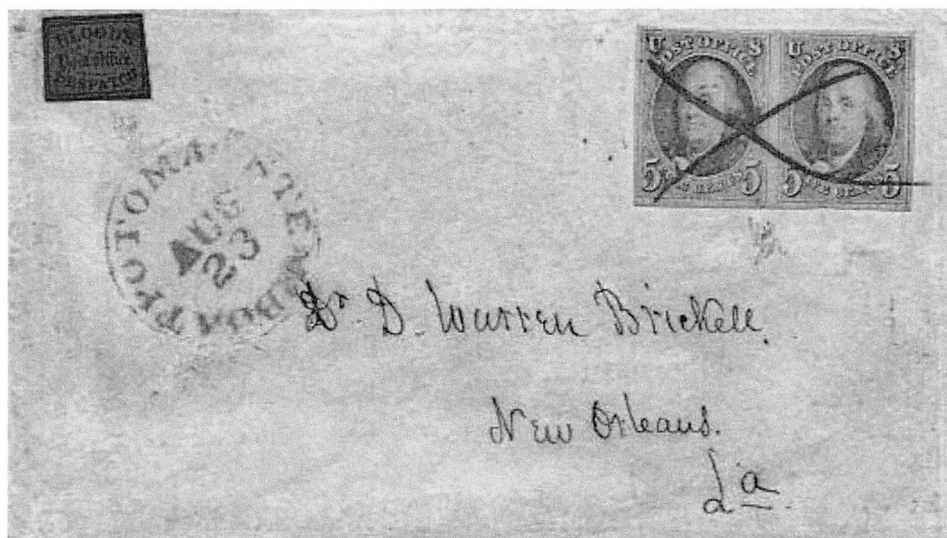 BLOOD'S
Post Office
DESPATCH
U S
POST OFFICE
5 FIVE CENTS 5
U S
POST OFFICE
5 FIVE CENTS 5
POTOMAC STEAMBOAT
AUG
23
Dr. D. Warren Brickell.
New Orleans.
La.